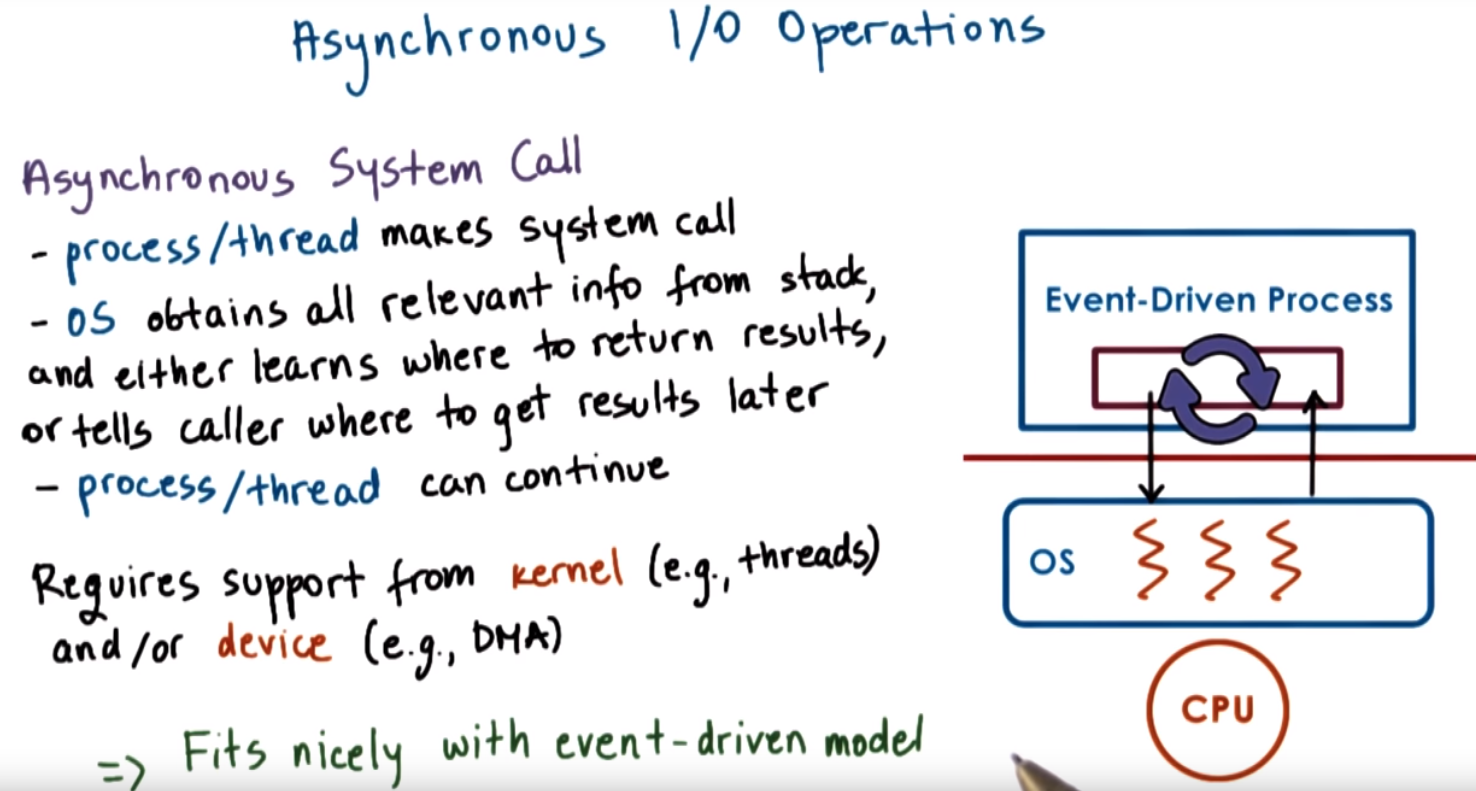 Asynchronous I/O Operations
Asynchronous System Call
- process/thread makes system call
- OS obtains all relevant info from stack,
and either learns where to return results,
or tells caller where to get results later
- process/thread can continue
Requires support from kernel (e.g., threads)
and/or device (e.g., DMA)
=> Fits nicely with event-driven model
Event-Driven Process
OS
CPU